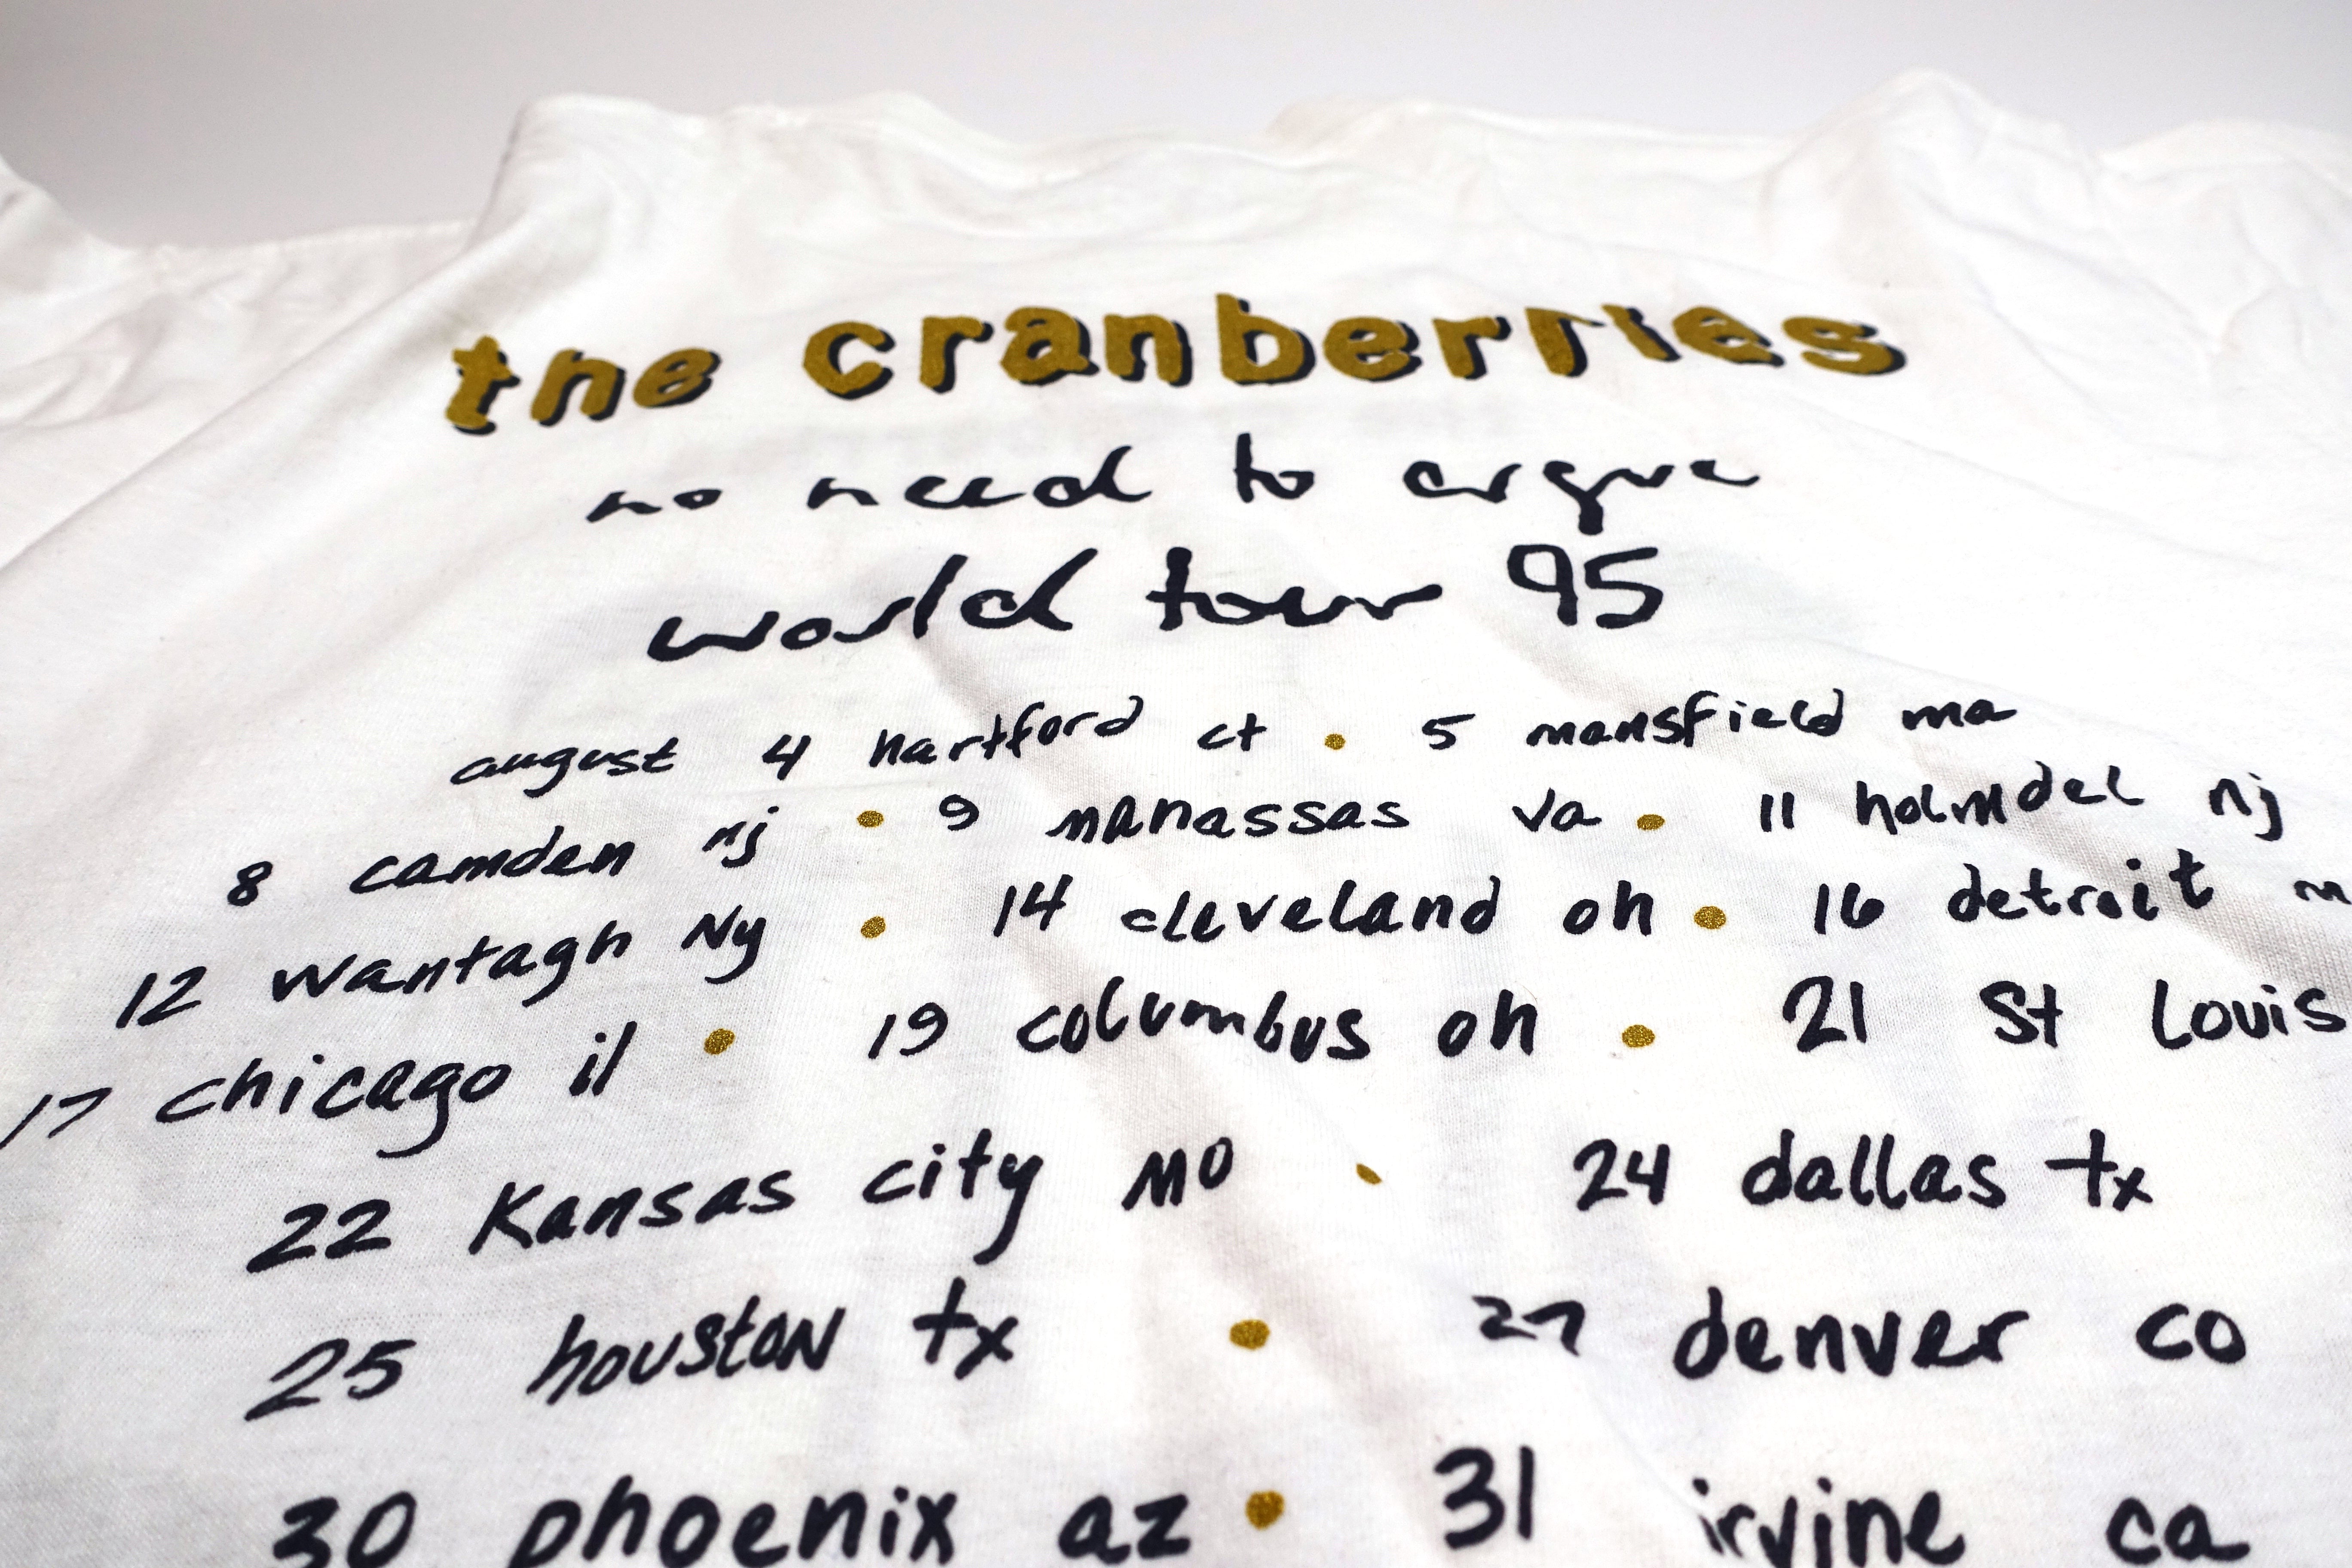 the cranberries
no need to argue
world tour 95
august 4 hartford ct • 5 mansfield ma
8 camden nj • 9 manassas va • 11 holmdel nj
12 wantagh Ny • 14 cleveland oh • 16 detroit m
17 chicago il • 19 columbus oh • 21 St Louis
22 Kansas city MO • 24 dallas tx
25 houston tx • 27 denver co
30 phoenix az • 31 irvine ca